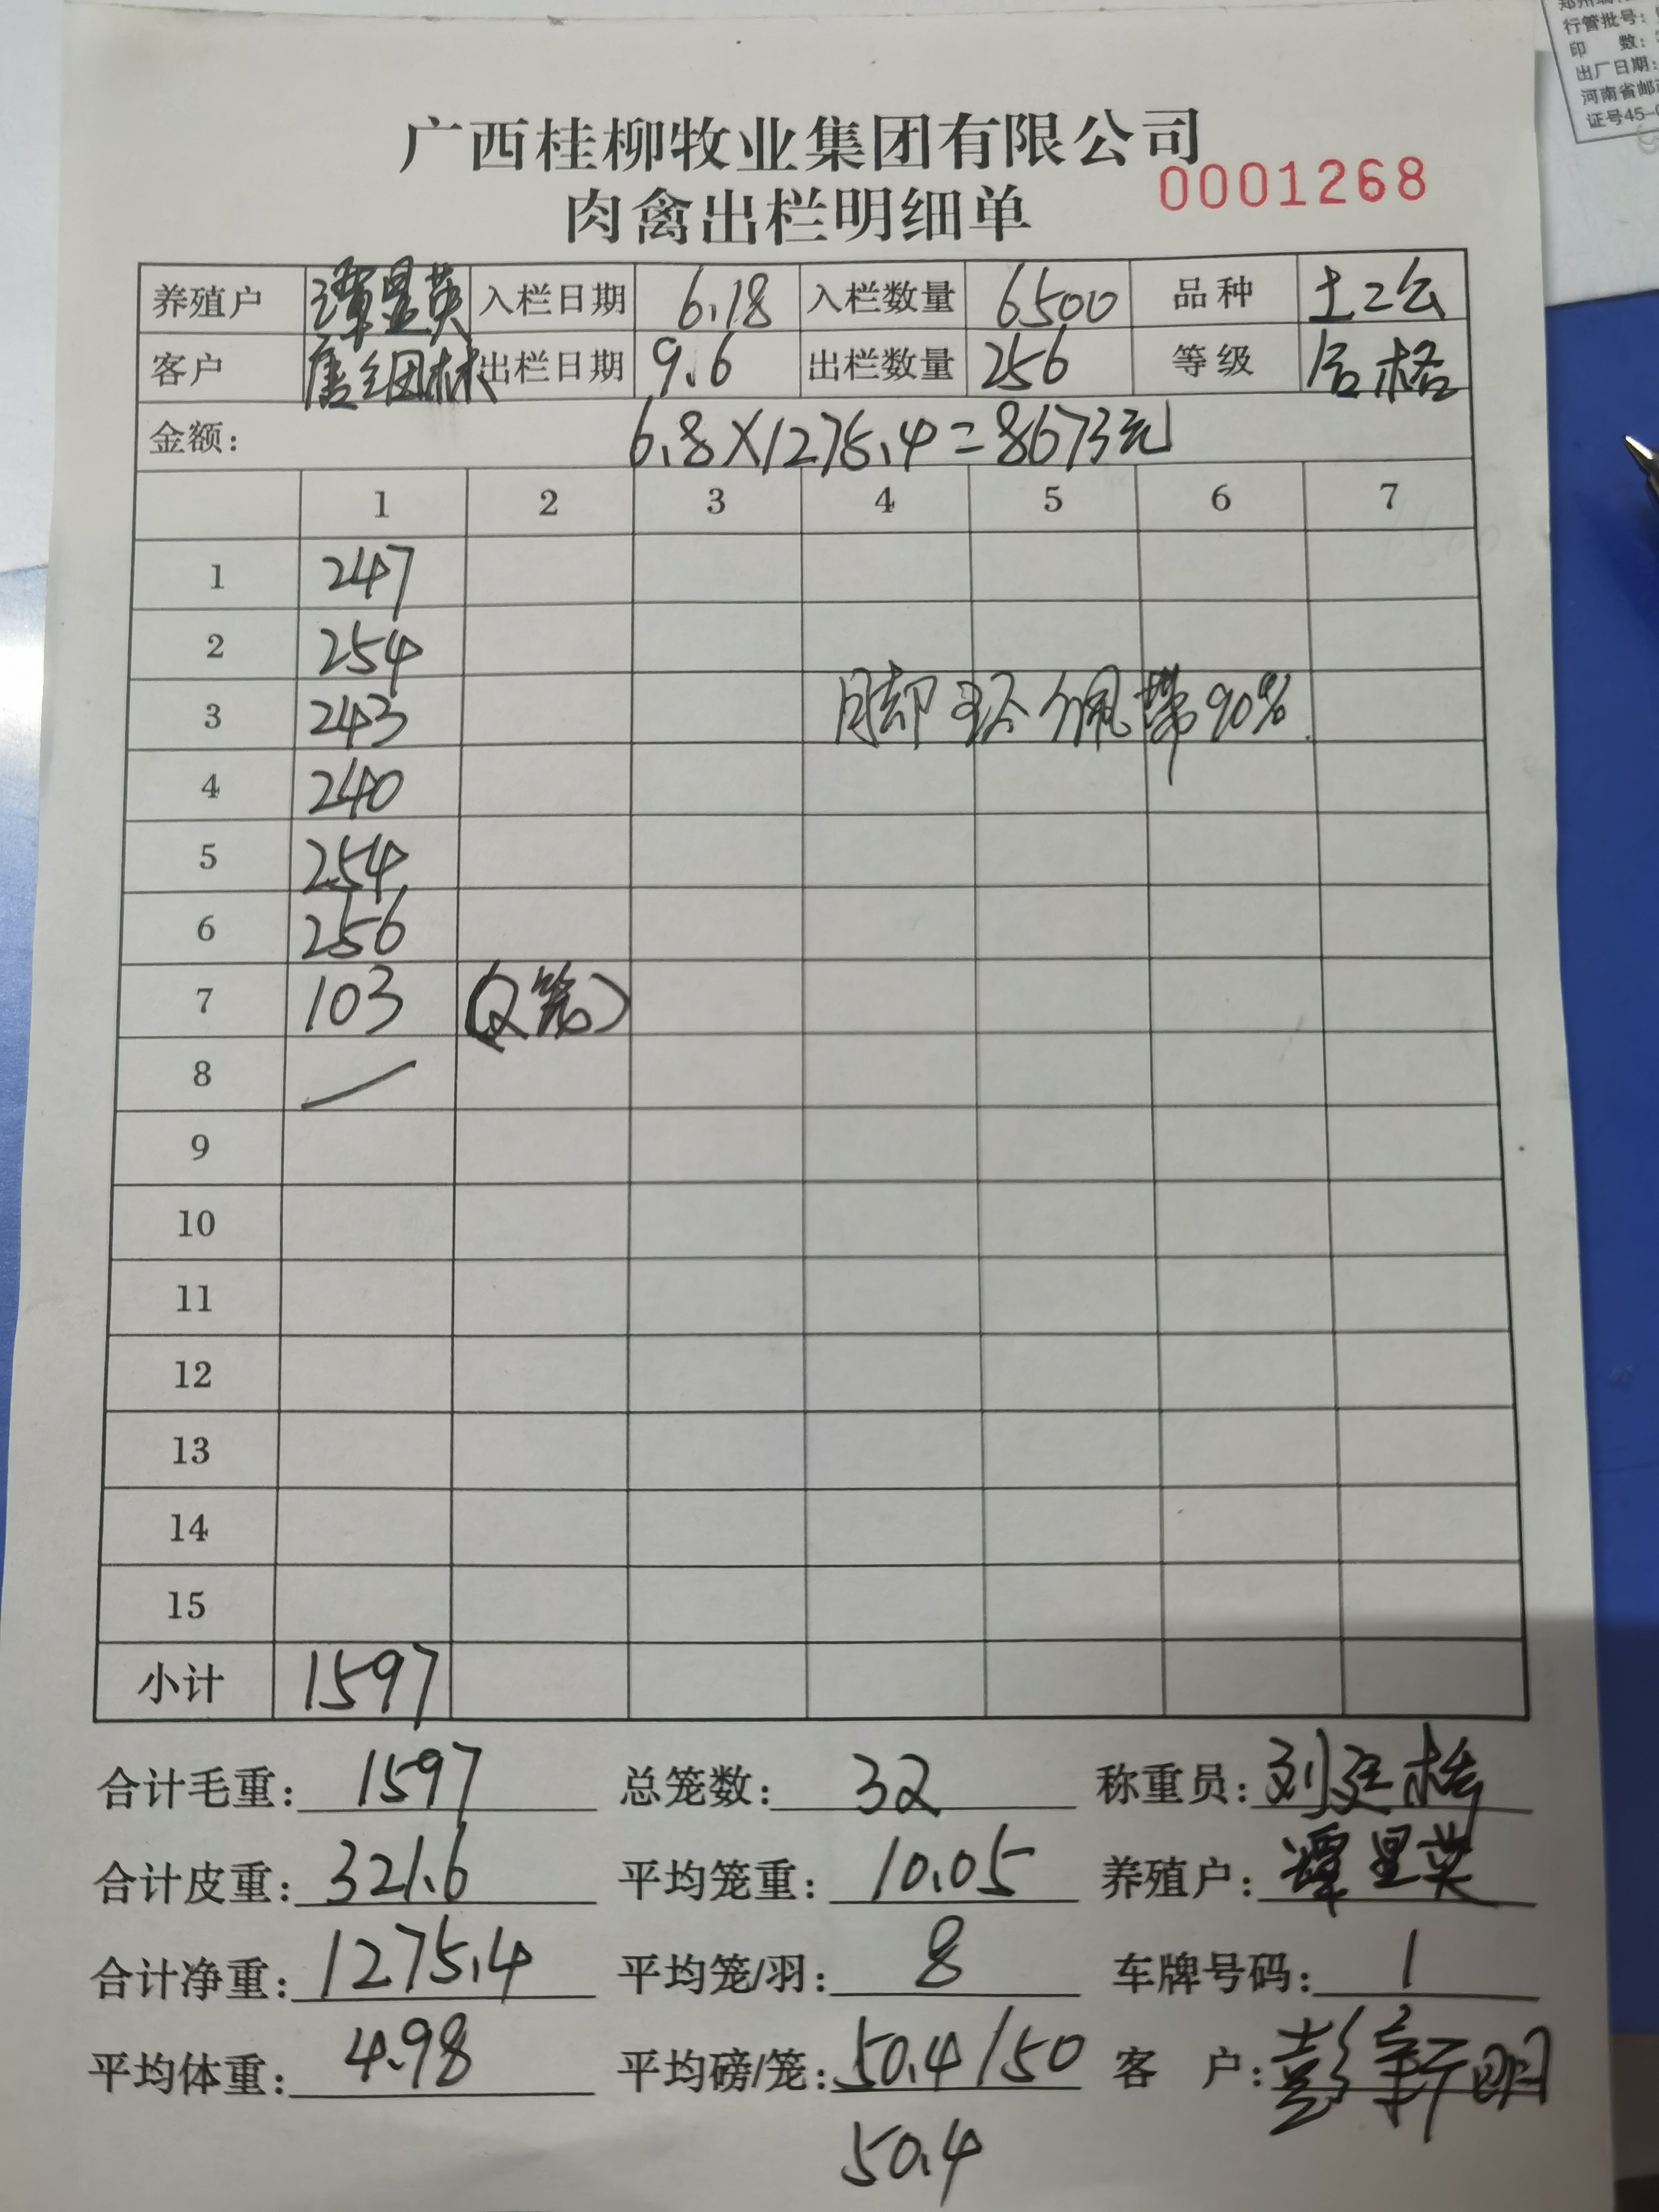 行管批号:
印 数:
出厂日期:
河南省邮
证号45-
广西桂柳牧业集团有限公司
肉禽出栏明细单 0001268
养殖户 谭显英 入栏日期 6.18 入栏数量 6500 品种 土2公
客户 唐细林 出栏日期 9.6 出栏数量 256 等级 合格
金额: 6.8×1275.4=8673元
1 2 3 4 5 6 7
1 247
2 254
3 243 脚环佩带90%
4 240
5 254
6 256
7 103 (2笼)
8
9
10
11
12
13
14
15
小计 1597
合计毛重: 1597 总笼数: 32 称重员: 刘廷
合计皮重: 321.6 平均笼重: 10.05 养殖户: 谭显英
合计净重: 1275.4 平均笼/羽: 8 车牌号码: 1
平均体重: 4.98 平均磅/笼: 50.4/50 客 户: 彭新明
50.4